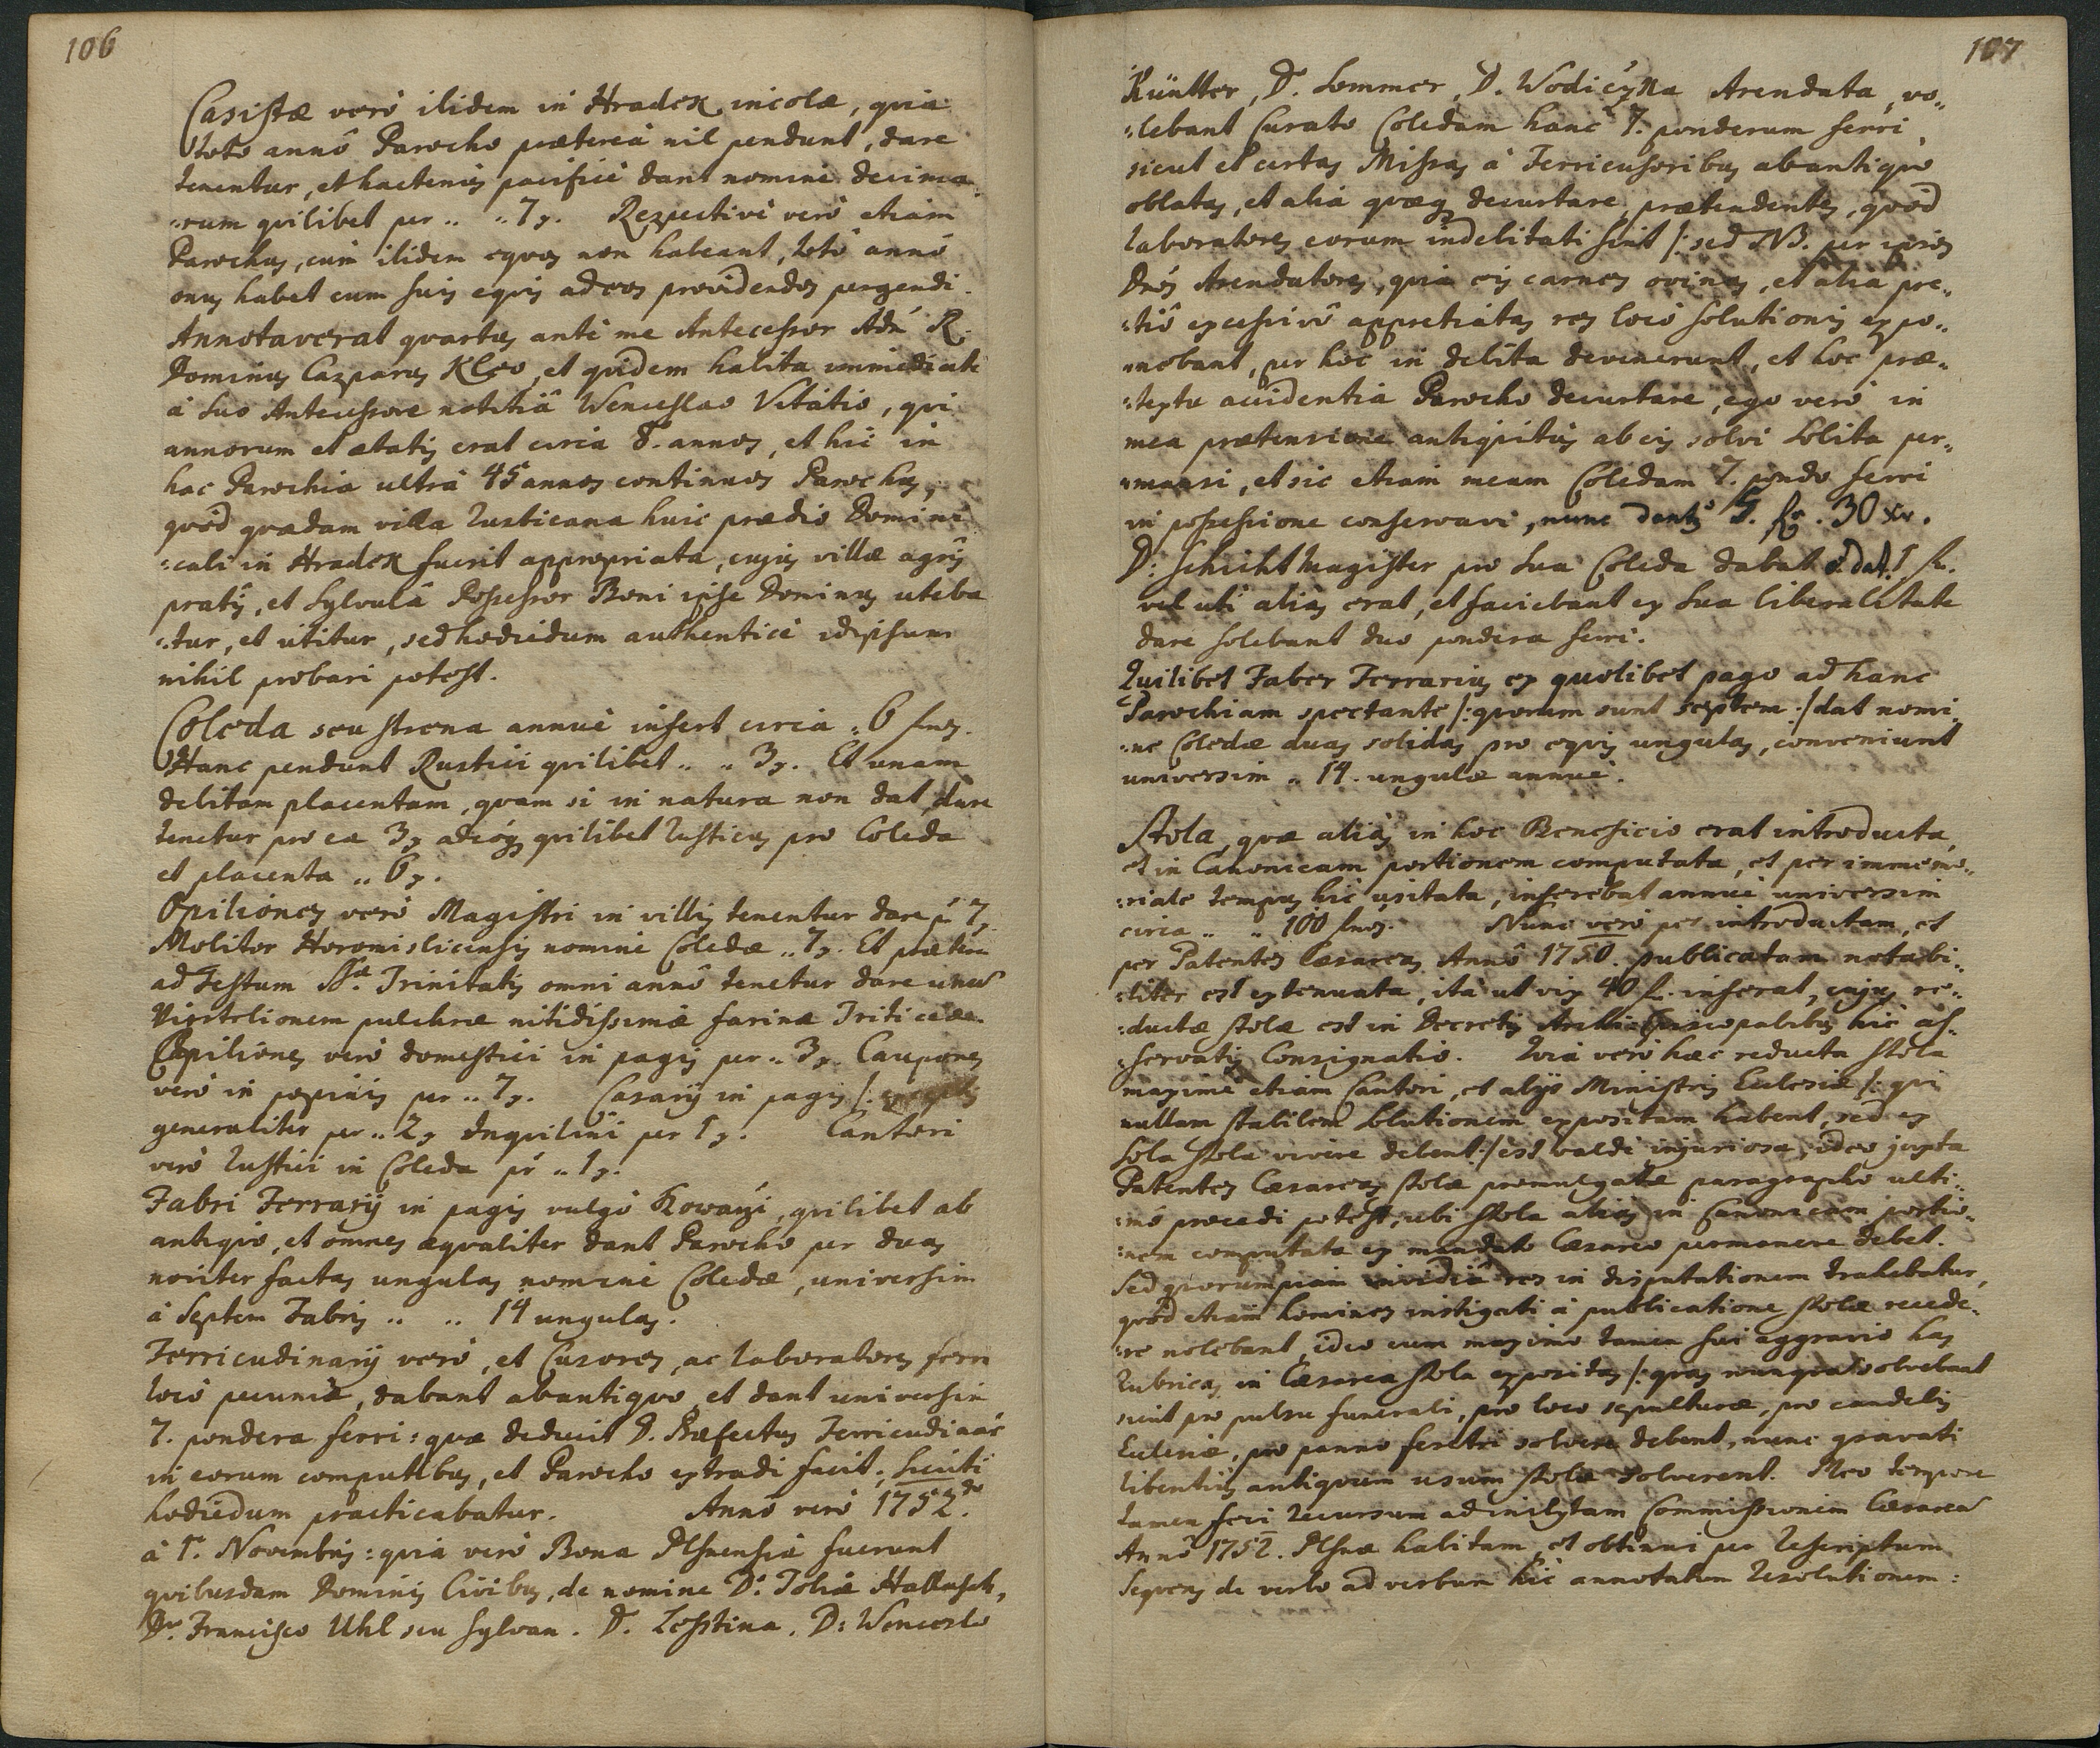 106
Casistæ verò ibidem in Hradek incolæ, quia
toto annô Parocho prætereà nil pendunt, dare
tenentur, et hactenùs pacificè dant nomine decima-
rum quilibet per .. .. 7 x. Respectivè verò etiam
Parochus, cùm ibidem equos non habeant, totô annô
onus habet cum suis equis ad eos providendos pergendi.
Annotaverat quartus antè me Antecessor Adm R.
Dominus Casparus Kleo, et quidem habita immediatè
à suo Antecessore notitiâ Wenceslao Vitatio, qui
annorum et ætatis erat circa 8. annos, et hic in
hac Parochia ultrà 45 annos continuos Parochus,
quòd quædam villa Rusticana huic prædio Domini-
cali in Hradek fuerit appropriata, cujus villæ agris
pratis, et sylvulâ Possessor Boni ipse Dominus uteba
tur, et utitur, sed hodiedum authenticè idipsum
nihil probari potest.
Coleda seu strena annuè infert circa .. 6 flnos.
Hanc pendunt Rustici quilibet .. .. 3 x. Et unam
debitam placentam, quam si in natura non dat, dare
tenetur pro ea 3 x adeóq quilibet Rusticus pro Coleda
et placenta .. 6 x.
Opiliones verò Magistri in villis tenentur dare p 7 x
Molitor Horomislicensis nomine Coledæ .. 7 x. Et præterea
ad Festum SSæ. Trinitatis omni annô tenetur dare unū
Viertelionem pulchræ nitidissimæ farinæ Triticeæ.
Opiliones verò domestici in pagis per .. 3 x. Caupones
verò in popinis per .. 7 x. Casarij in pagis /:
generaliter per .. 2 x Inquilini per 1 x. Cantori
verò Rustici in Coleda pr .. 1 x.
Fabri Ferrarij in pagis vulgò Kowarži, quilibet ab
antiquo, et omnes æqualiter dant Parocho per duas
noviter factas ungulas nomine Coledæ, universim
à Septem Fabris .. .. 14 ungulas.
Ferricudinarij verò, et Cusores, ac Laboratores ferri
locô pecuniæ, dabant abantiquo, et dant universim
7. pondera ferri: quæ deducit D. Præfectus Ferricudinar
in eorum computibus, et Parocho extradi facit; sicuti
hodiedum practicabatur. Annô verò 1752do.
à 1. Novembris: quia verò Bona Plsnensia fuerunt
quibusdam Dominis Civibus, de nomine D: Tobiæ Hallasch,
Dno. Francisco Uhl seu Sylvan. D. Lesstina, D: Wenceslo
107
Küntter, D. Sommer, D. Wodiczka Arendata, vo-
lebant Curato Coledam hanc 7. ponderum ferri
sicut et certas Missas à Ferricusoribus abantiquò
oblatas, et alia quæq decurtare, prætendentes, quòd
laboratores eorum indebitati sint /: sed NB. per ipsos
Dnos Arendatores, quia eis carnes ovinas, et alia pre-
tiô excessivô appretiatas res locô solutionis expo-
nebant, per hoc in debita devenerunt, et hoc præ-
textu accidentia Parocho decurtare, ego verò in
mea prætensione antiquitùs ab eis solvi solita per-
mansi, et sic etiam meam Coledam 7. pondo ferri
in possessione conservavi, nunc dant 5. fr. 30 xr.
D: Schichtmagister pro sua Coleda dabat et dat 1 fl.
vel uti aliàs erat, et faciebant ex sua liberalitate
dare solebant duo pondera ferri.
Quilibet Faber Ferrarius ex quolibet pago ad hanc
Parochiam spectante /: quorum sunt septem :/ dat nomi-
ne Coledæ duas solidas pro equis ungulas, conveniunt
universim .. 14. ungulæ annuè.
Stola, quæ aliàs in hoc Beneficio erat introducta,
et in Canonicam portionem computata, et per immemo-
riale tempus hic usitata, inferebat annuè universim
circa .. .. 100 flnos. Nunc verò per introductam, et
per Patentes Cæsareas Annô 1750. publicatam notabi-
liter est extenuata, ità ut vix 40 fl. inferat, cujus re-
ductæ stolæ est in Decretis Archi Episcopalibus hic as-
servatis Consignatio. Quia verò hæc reducta stola
maximè etiam Cantori, et alijs Ministris Ecclesiæ /: qui
nullam stabilem solutionem expositam habent, sed ex
sola stola vivere debent :/ est valdè injuriosa, ideo juxta
Patentes Cæsareas stolæ promulgatæ paragrapho ulti-
mô procedi potest, ubi stola aliàs in Canonicam portio-
nem computata ex mandato Cæsareo permanere debet.
Sed quorumpiam invidiâ res in disputationem trahebatur,
quòd etiam homines instigati à publicatione stolæ recede-
re nolebant, ideo cum maximo tamen sui aggravio has
Rubricas in Cæsarea stola expositas /: quas nunquam solvebant
sicut pro pulsu funerali, pro loco sepulturæ, pro candelis
Ecclesiæ, pro panno feretri solvere debent, nunc gravati
libentiùs antiquum usum stolæ solverent. Meo tempore
tamen feci recursum ad inclytam Commissionem Cæsareā
Annô 1752. Plsnæ habitam, et obtinui per Rescriptum
sequens de verbo ad verbum hic annotatum Resolutionem: